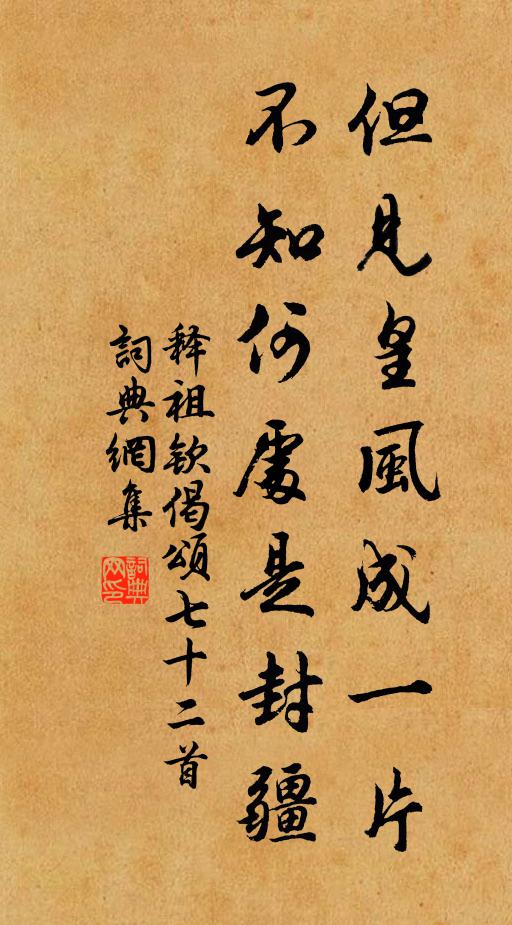 但見皇風成一片
不知何處是封疆
释祖钦偈頌七十二首
詞典網集
詞典网印